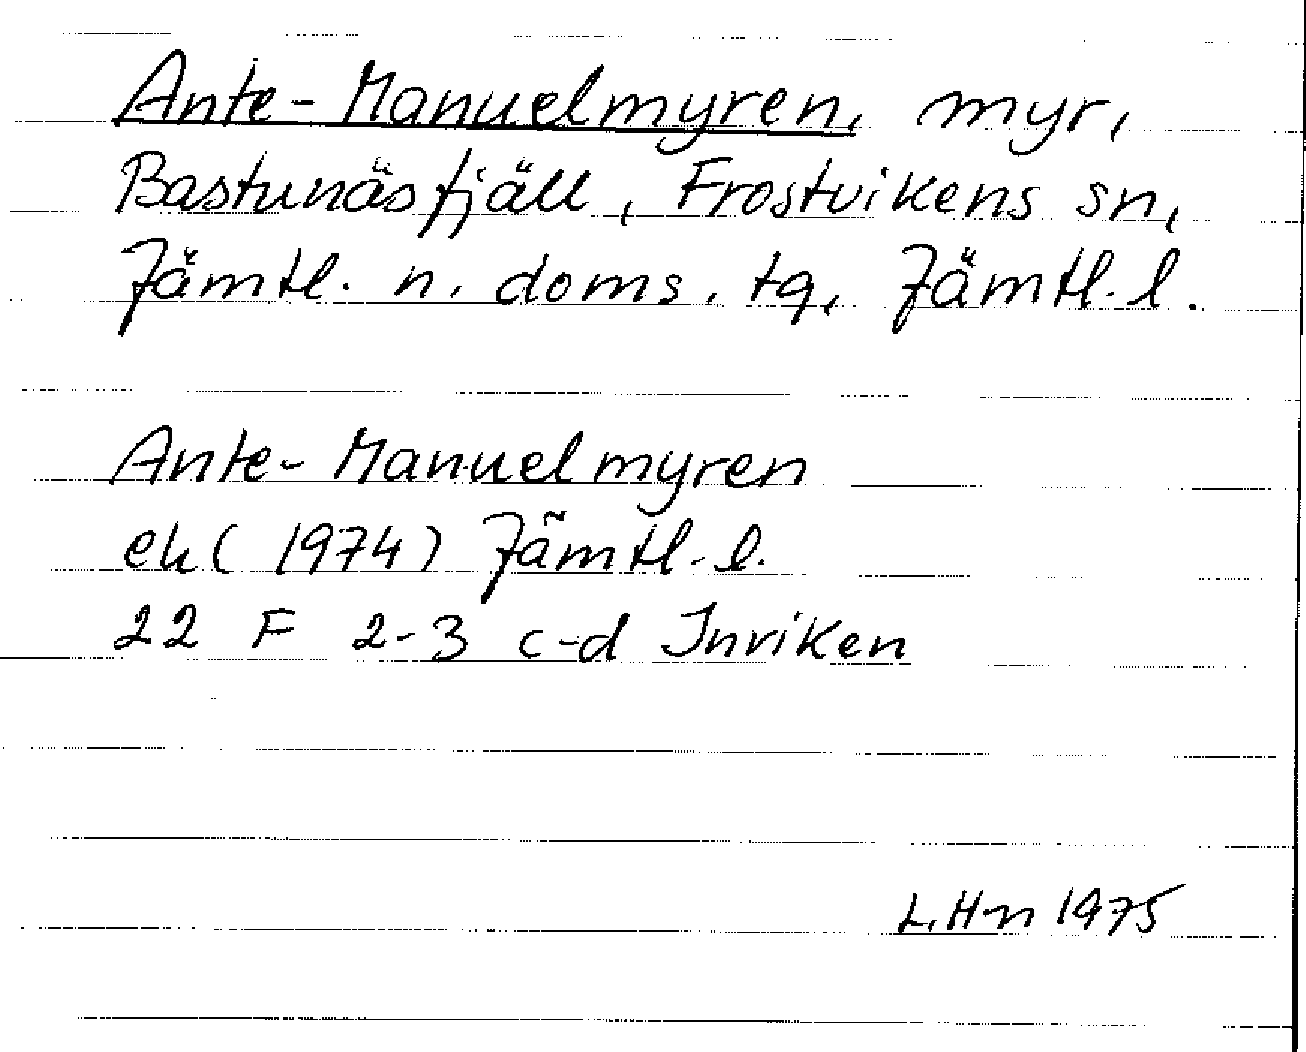 Ante-Manuelmyren, myr,
Bastunäsfjäll, Frostvikens sn,
Jämtl. n. doms. tq, Jämtl. l.
Ante-Manuelmyren
ek (1974) Jämtl. l.
22 F 2-3 c-d Inviken
L. H-n 1975